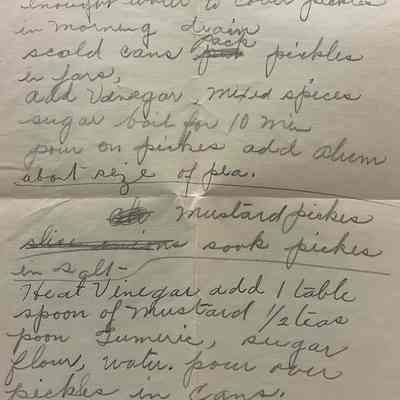 enought water to cover pickles
in morning drain
scald cans pack pickles
in jars,
add Vinegar, mixed spices
sugar boil for 10 min
pour on pickes add alum
about size of pea.
Mustard pickes
slice onions soak pickes
in salt-
Heat Vinegar add 1 table
spoon of Mustard 1/2 teas
poon Tumeric, sugar
flour, water. pour over
pickles in cans.